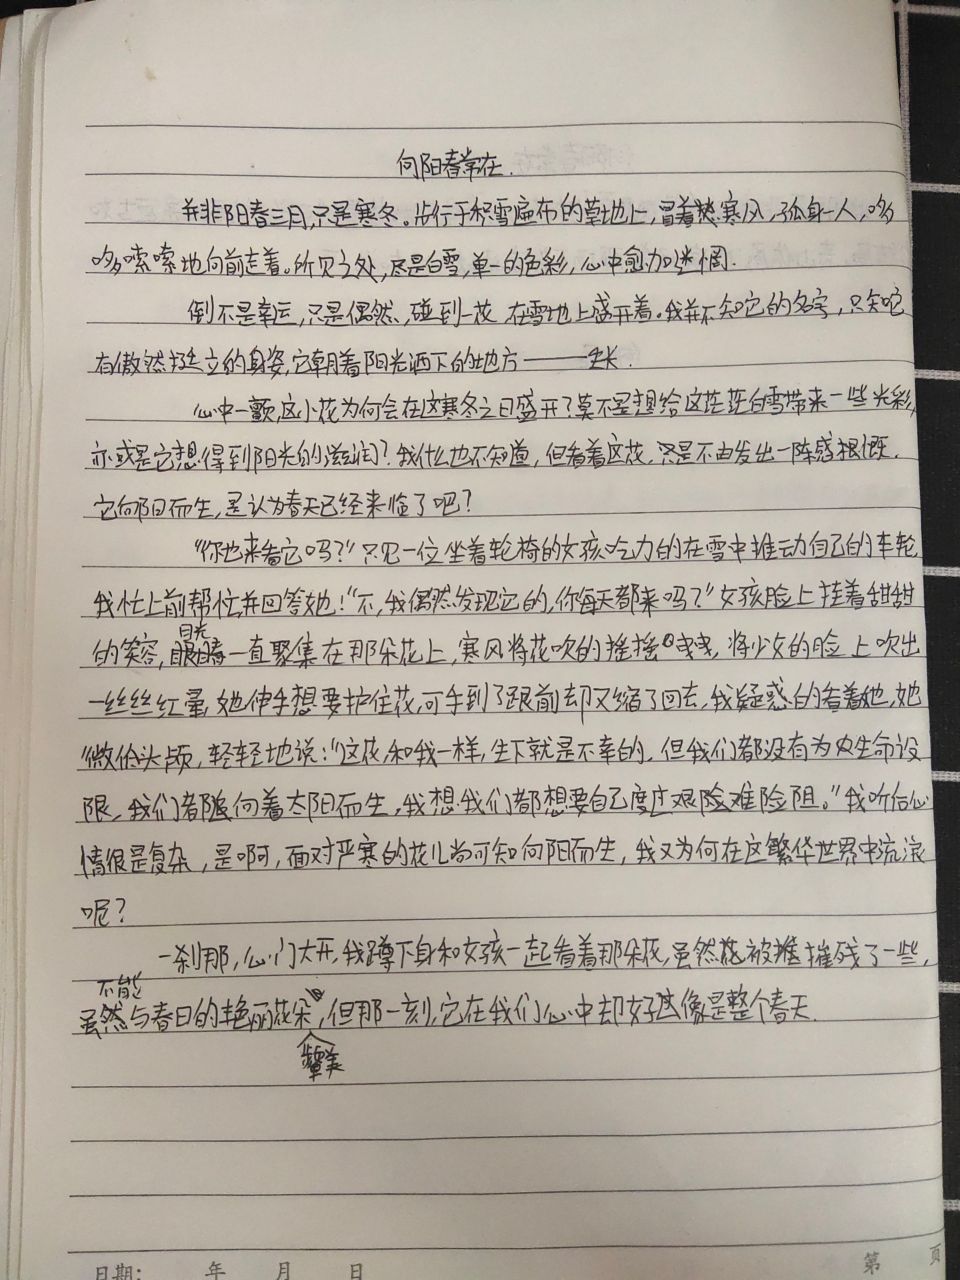 向阳春常在.
并非阳春三月,只是寒冬。步行于积雪遍布的草地上,冒着寒风,孤身一人,哆
哆嗦嗦地向前走着。所见之处,尽是白雪,单一的色彩,心中愈加迷惘.
倒不是幸运,只是偶然,碰到一花 在雪地上盛开着。我并不知它的名字,只知它
有傲然挺立的身姿,它朝着阳光洒下的地方——生长.
心中一颤,这小花为何会在这寒冬之日盛开?莫不是想给这茫茫白雪带来一些光彩,
亦或是它想得到阳光的滋润?我什么也不知道,但看着这花,只是不由发出一阵感慨.
它向阳而生,是认为春天已经来临了吧?
“你也来看它吗?”只见一位坐着轮椅的女孩吃力的在雪中推动自己的车轮,
我忙上前帮忙,并回答她!“不,我偶然发现它的,你每天都来吗?”女孩脸上挂着甜甜
的笑容,目光一直聚集在那朵花上,寒风将花吹的摇摇曳曳,将少女的脸上吹出
一丝丝红晕,她伸手想要护住花,可手到了跟前却又缩了回去,我疑惑的看着她,她
微低头颅,轻轻地说:“这花,和我一样,生下就是不幸的,但我们都没有为生命设
限,我们都向着太阳而生,我想,我们都想要自己度过艰险难险阻。”我听后心
情很是复杂,是啊,面对严寒的花儿尚可知向阳而生,我又为何在这繁华世界中流浪
呢?
一刹那,心门大开,我蹲下身和女孩一起看着那朵花,虽然花被摧残了一些,
不能
虽然与春日的艳丽花朵,但那一刻,它在我们心中却好像是整个春天.
媲美